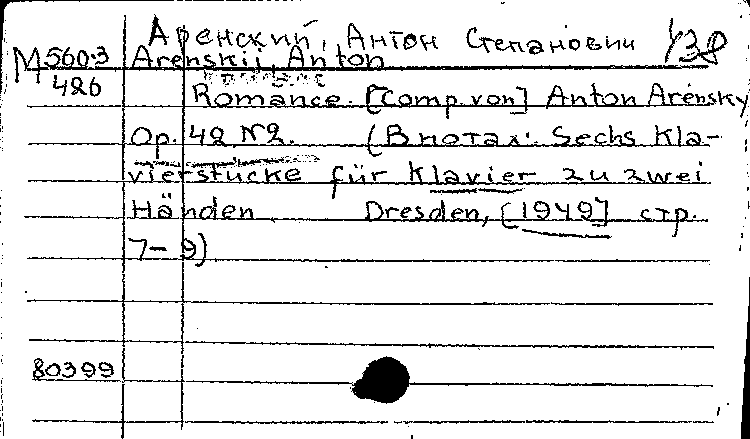 Аренский, Антон Степанович
М 560.3 Arenskii, Anton
426
Romance. [Comp. von] Anton Arensky
Op. 42 N2. (В нотах: Sechs Kla-
vierstücke für Klavier zu zwei
Händen. Dresden, [1949] стр.
7-9)
80399